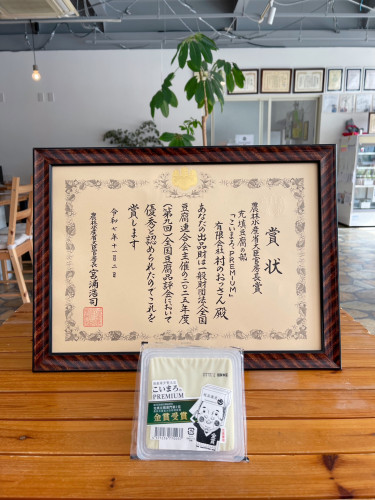 賞状
農林水産省大臣官房長賞
充填豆腐の部
「こいまろ、PREMIUM」
有限会社村のおっさん 殿
あなたの出品財は一般財団法人全国
豆腐連合会主催の二〇二五年度
(第九回)全国豆腐品評会において
優秀と認められたのでこれを
賞します
令和七年十一月二日
農林水産省大臣官房長 宮浦浩司
こいまろ。
PREMIUM
金賞受賞